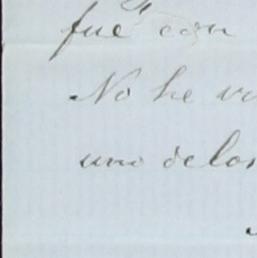 fué con
No he
uno de los